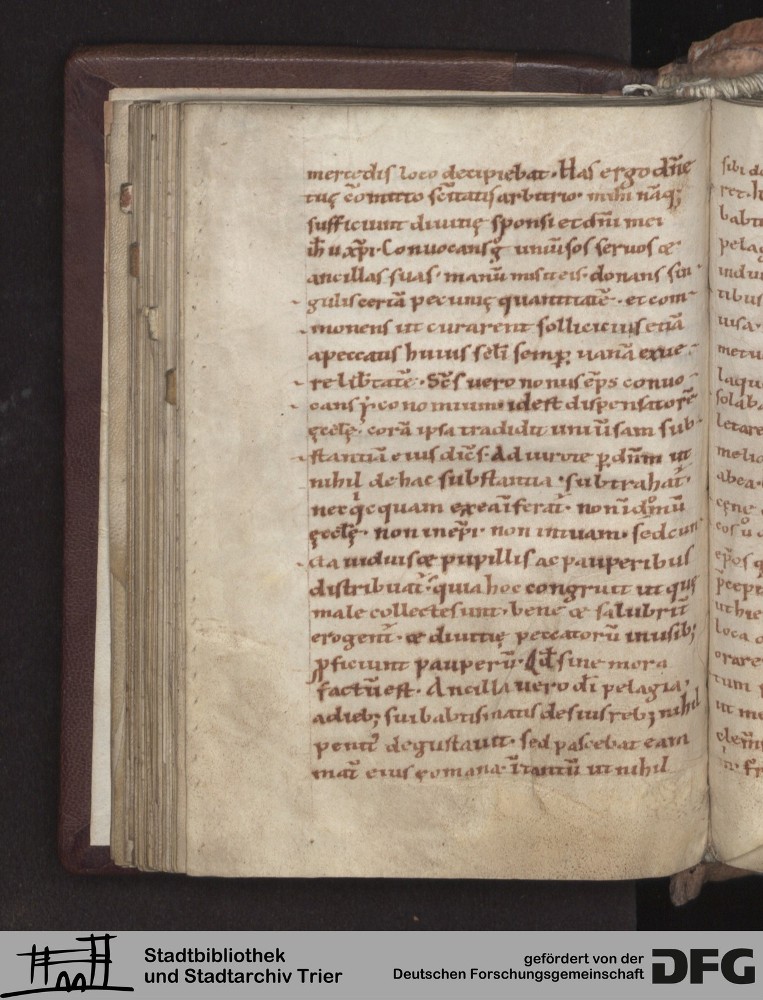 mercedis loco decipiebat. Has ergo dn̄e
tuę cōmitto sc̄itatis arbitrio. mihi nāq;
sufficiunt diuitię sponsi et dn̄i mei
ih̄u xp̄i. Conuocans g̊ uniūsos seruos &
ancillas suas. manū misit eis. donans sin
gulis certā pecunię quantitatē. et com
monens ut curarent solliciti ius etiā
a peccatis huius sc̄li semp̱ uanā exue
re lib̄tatē. Sc̄s uero nonus ep̄s conuo
cans yconomium id est dispensatorē
ęccl̄ę. corā ipsa tradidit uniūsam sub
stantiā eius dic̄s. Adiuro te p̱ dn̄m ut
nihil de hac substantia subtrahat̄.
nec q̇cquam exeā iferat̄. non ī domū
ęccl̄ę. non in ep̄i. non in tuam. sed cun
cta uiduis & pupillis ac pauperibus
distribuat̄. quia hoc congruit ut quę
male collecte sunt. bene & salubrit̄
erogent̄. & diuitię peccatorū in usib;
p̱ficiunt pauperū. Qd̄ sine mora
factū est. Ancilla uero dī pelagia.
a dieb; sui babtismatis de suis reb; nihil
penit̄ degustauit. sed pascebat eam
mat̄ eius romana. ītantū ut nihil
sibi d
ret. h
babti
pelag
indui
tibus
uisa.
metu
laqu
solaba
letare
melio
abea.
cęne
eos ů
ep̄os q
p̄cept
ut hie
loca o
orare
tum
ut me
clem̄
Stadtbibliothek
und Stadtarchiv Trier
gefördert von der
Deutschen Forschungsgemeinschaft
DFG